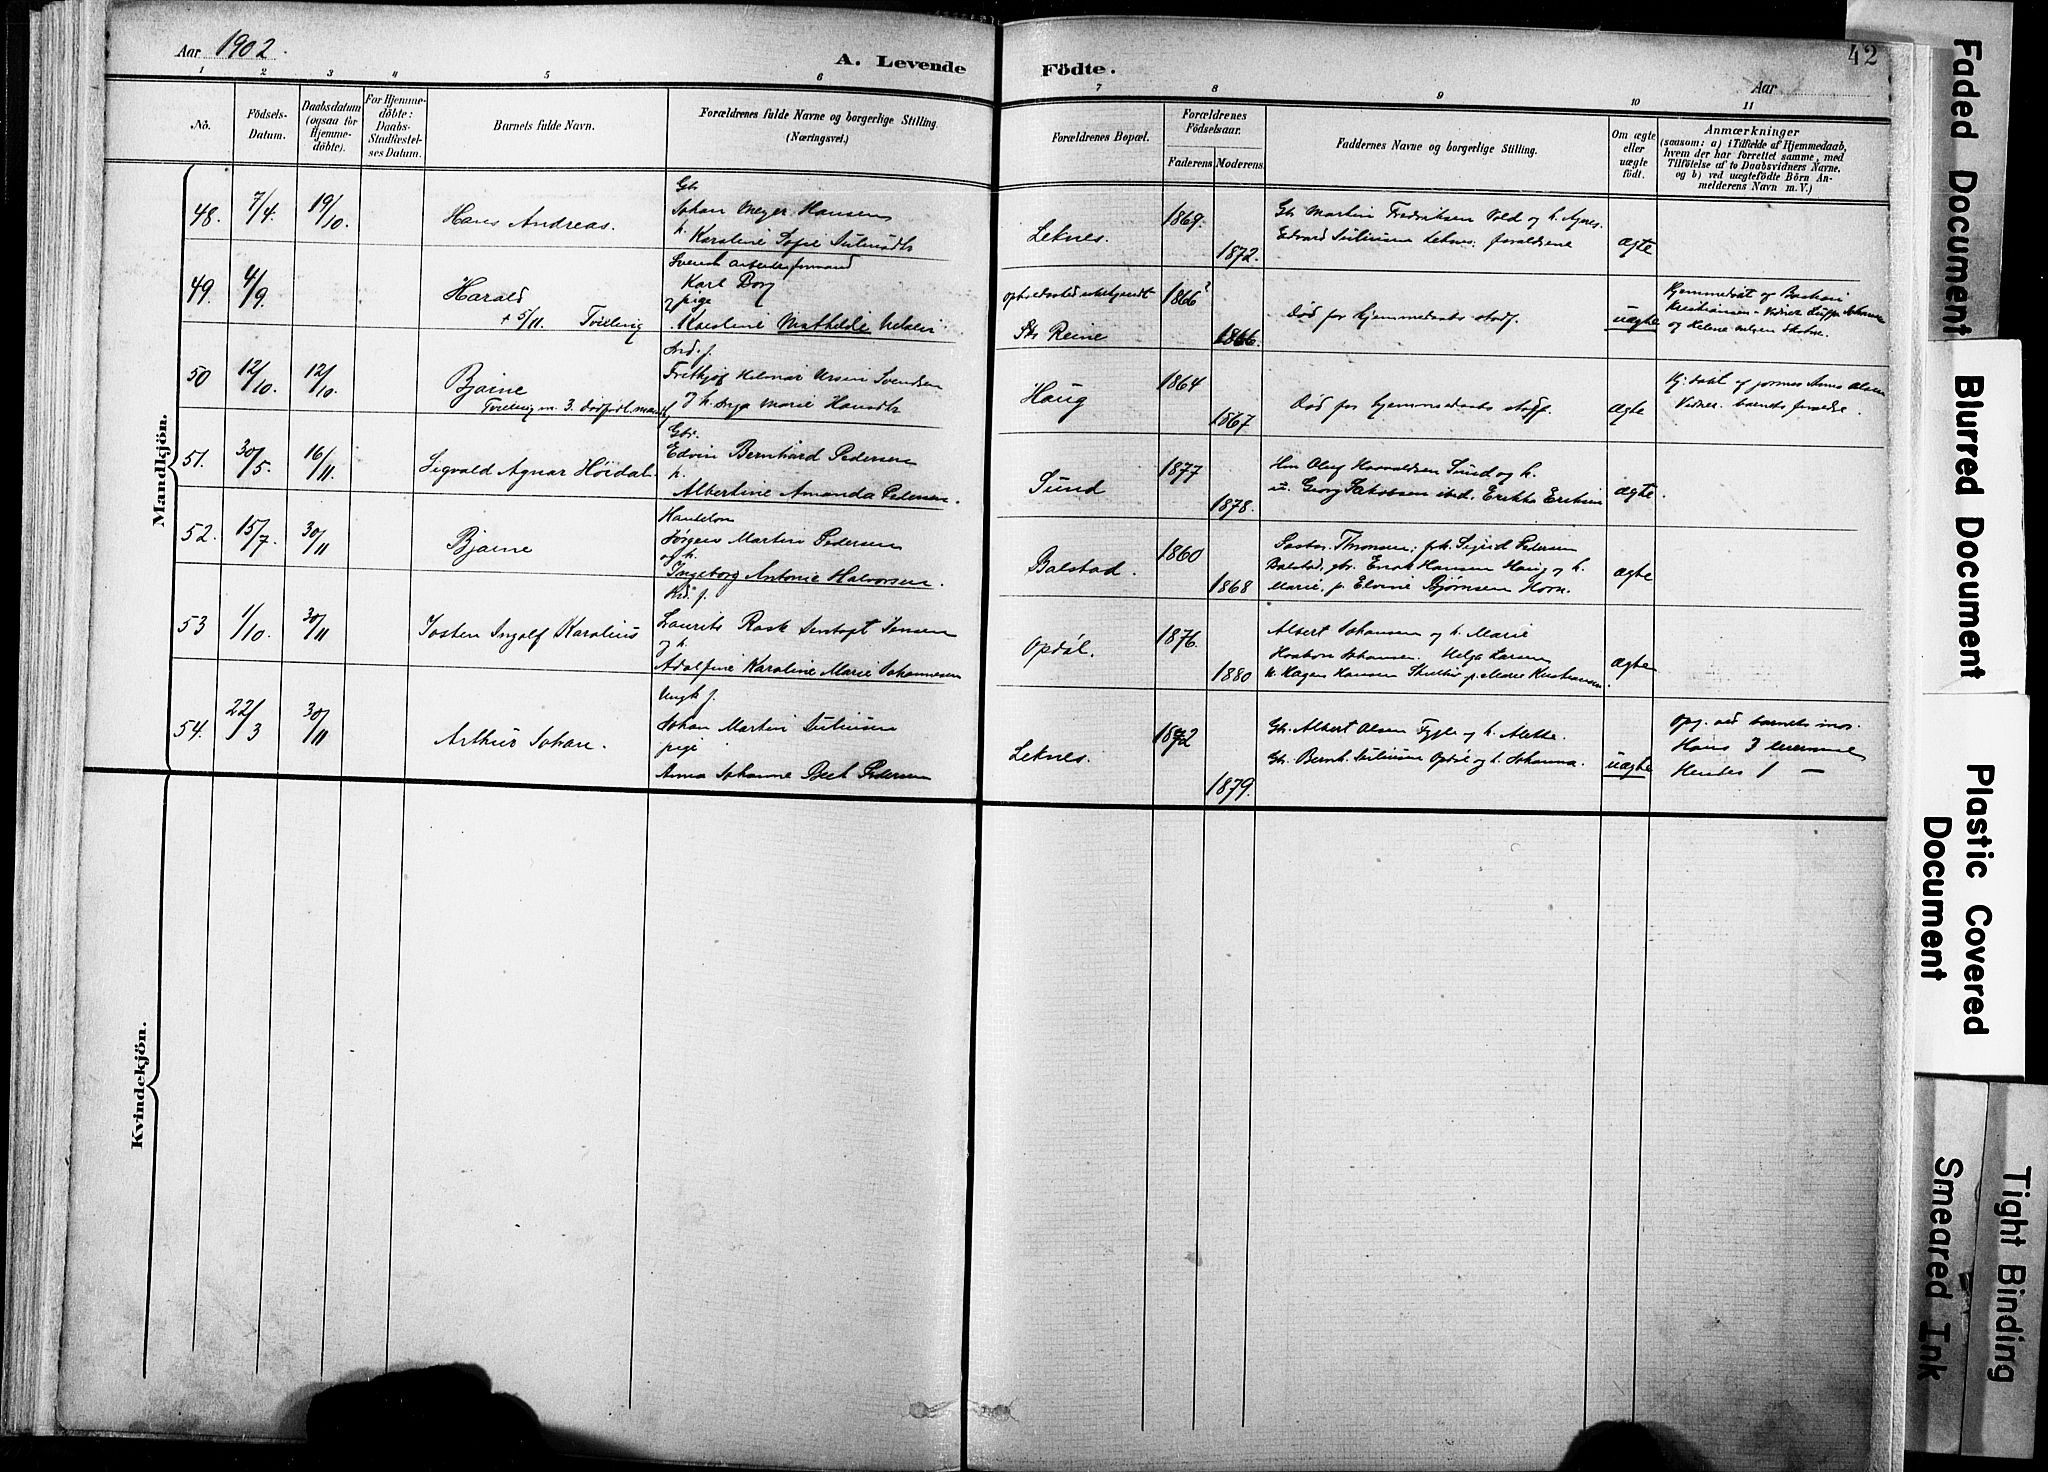 Aar 1902.
A. Levende Födte.
Aar
42
1 2 3 4 5 6 7 8 9 10 11
No.
Födsels-
Datum.
Daabsdatum
(ogsaa for
Hjemme-
döbte).
For Hjemme-
döbte:
Daabs-
Stadfæstel-
ses Datum.
Barnets fulde Navn.
Forældrenes fulde Navne og borgerlige Stilling.
(Næringsvei.)
Forældrenes Bopæl.
Forældrenes
Födselsaar.
Faderens Moderens
Faddernes Navne og borgerlige Stilling.
Om ægte
eller
uægte
födt.
Anmærkninger
(saasom: a) i Tilfælde af Hjemmedaab,
hvem der har forrettet samme, med
Tilföielse af to Daabsvidners Navne.
og b) ved uægtefödte Börn An-
melderens Navn m. V.)
Mandkjön.
48. 7/4. 19/10. Hans Andreas.
Gbr.
Johan Meyer Hansen
h. Karoline Sofie
Leknes. 1869. 1872.
Gbr. Martin Fredriksen Vold og h. Agnes.
Edvard Leknes. forældrene
ægte
49. 4/9. Harald
+ 5/11. Tvilling
Svensk arbeidsformand
Karl Borg
pige
Karoline Mathilde
opholdssted ubekjendt 1866?
Reine 1866.
Død før hjemmedaabs stadf.
uægte
Hjemmedøbt af
Kristiansen - Vidner
og Helene
50 12/10. 12/10. Bjarne
Tvilling m. 3. dødfødt
Ind. f.
Frithjof Hilmar Svendsen
h. Inga Marie
Haug 1864 1867.
Død før hjemmedaabs stadf.
ægte
Hj. døbt af jormor Anna Olsen
Vidner. barnets forældre.
51. 30/5. 16/11. Sigvald Agnar Høidal.
Gbr.
Edvin Bernhard Pedersen
h.
Albertine Amanda Pedersen.
Sund 1877 1878.
Oluf Sund og h.
Georg Jakobsen ibid. Erikka Eriksen
ægte.
52. 15/7. 30/11 Bjarne
Handelsm
Jørgen Martin Pedersen
og h.
Ingeborg Antonie Halvorsen.
Balstad. 1860 1868
Pastor Thomsen; frk. Sigrid Pedersen
Balstad, gbr. Hansen Haug og h.
Marie, p. Elvine Bjørnsen Horn.
ægte
53 1/10. 30/11 Josten Ingolf Karolius
Ind. f.
Laurits Rask Jensen
h.
Adolfine Karoline Marie Johannesen
Opdøl. 1876. 1880
Albert Johansen og h. Marie
Johansen. Helga Larsen
u. Hagen Hansen p. Marie Kristiansen.
ægte
54. 22/3 30/11 Arthur Johan.
Ungk. f.
Johan Martin
pige
Anna Johanne Pedersen
Leknes. 1872 1879.
Gbr. Albert Olsen Fygle og h. Alette.
Gbr. Bernh. Opdøl og h. Johanna.
uægte
Opg. ved barnets mor.
Hans 3
Hendes 1 —
Kvindekjön.
Faded Document
Blurred Document
Plastic Covered
Document
Tight Binding
Smeared Ink